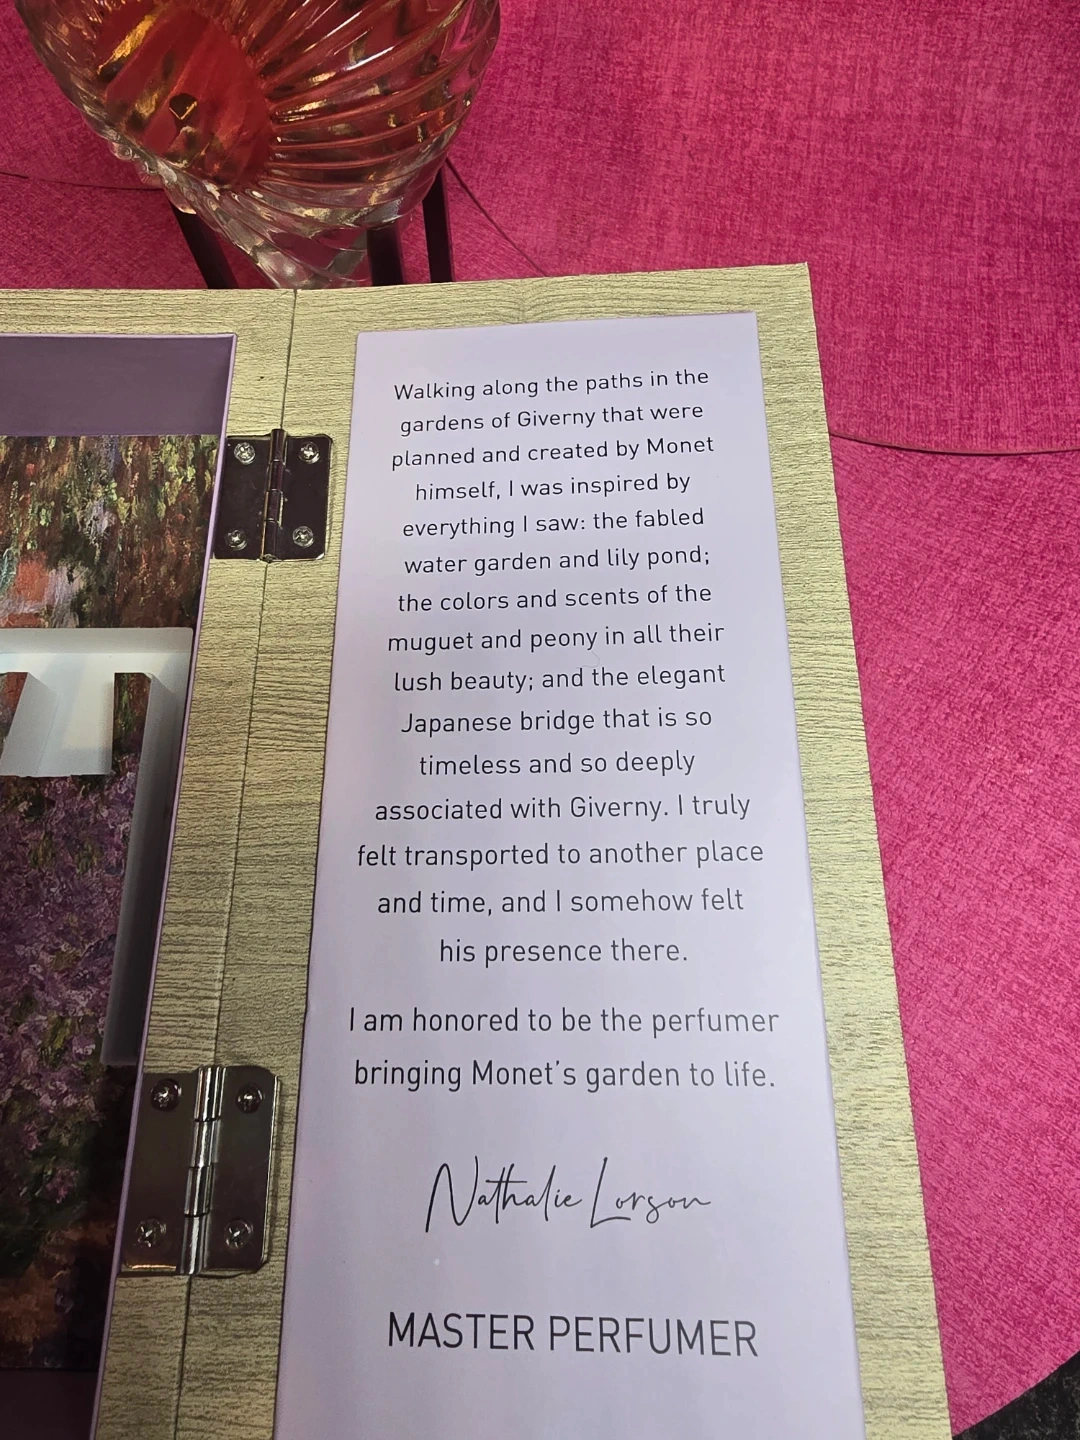 Walking along the paths in the
gardens of Giverny that were
planned and created by Monet
himself, I was inspired by
everything I saw: the fabled
water garden and lily pond;
the colors and scents of the
muguet and peony in all their
lush beauty; and the elegant
Japanese bridge that is so
timeless and so deeply
associated with Giverny. I truly
felt transported to another place
and time, and I somehow felt
his presence there.
I am honored to be the perfumer
bringing Monet's garden to life.
Nathalie Lorson
MASTER PERFUMER